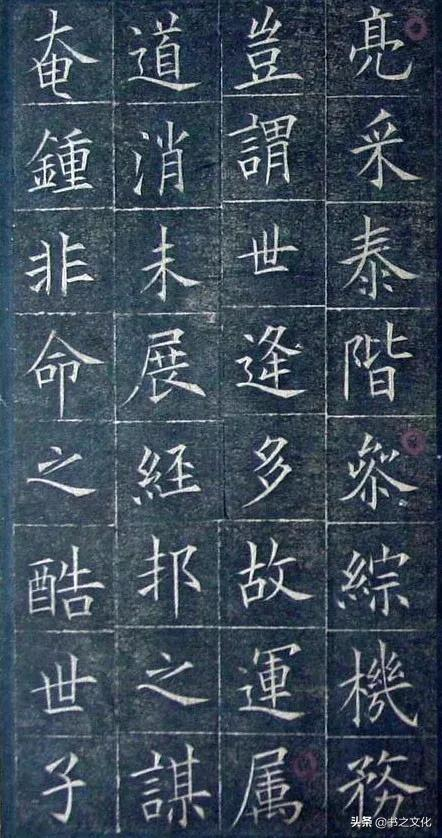 亮采泰階叅綜機務
豈謂世逢多故運属
道消未展經邦之謀
奄鍾非命之酷世子
头条 @书之文化